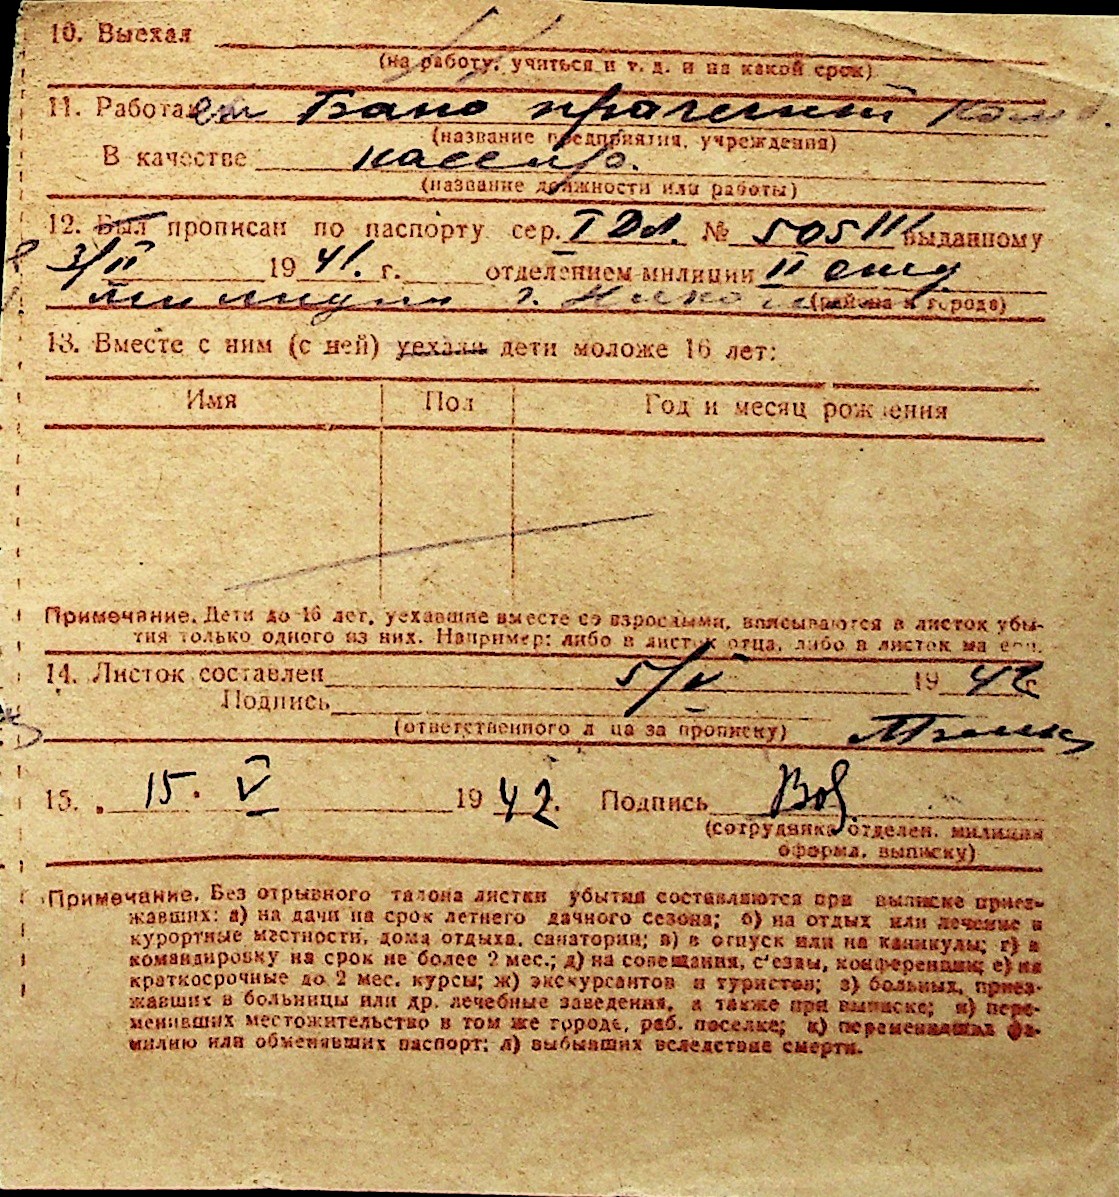 10. Выехал
(на работу, учиться и т. д. и на какой срок)
11. Работает Бано прачечный Комб.
(название предприятия, учреждения)
В качестве кассира.
(название должности или работы)
12. Был прописан по паспорту сер. I ДЛ. № 505111 выданному
3/II 1941. г. отделением милиции II отд
милиции г.
(района и города)
13. Вместе с ним (с ней) уехали дети моложе 16 лет:
Имя Пол Год и месяц рождения
Примечание. Дети до 16 лет, уехавшие вместе со взрослыми, вписываются в листок убы-
тия только одного из них. Например: либо в листок отца, либо в листок матери.
14. Листок составлен 5/V 1942
Подпись
(ответственного лица за прописку)
15. 15. V 1942. Подпись
(сотрудника отделен. милиции
оформл. выписку)
Примечание. Без отрывного талона листки убытия составляются при выписке приез-
жавших: а) на дачи на срок летнего дачного сезона; б) на отдых или лечение в
курортные местности, дома отдыха, санатории; в) в отпуск или на каникулы; г) в
командировку на срок не более 2 мес.; д) на совещания, с'езды, конференции; е) на
краткосрочные до 2 мес. курсы; ж) экскурсантов и туристов; з) больных, приез-
жавших в больницы или др. лечебные заведения, а также при выписке; и) пере-
менивших местожительство в том же городе, раб. поселке; к) переменивших фа-
милию или обменявших паспорт; л) выбывших вследствие смерти.